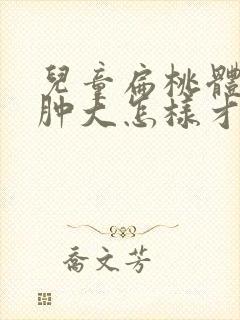 兒童扁桃體
肿大怎樣才
喬文芳